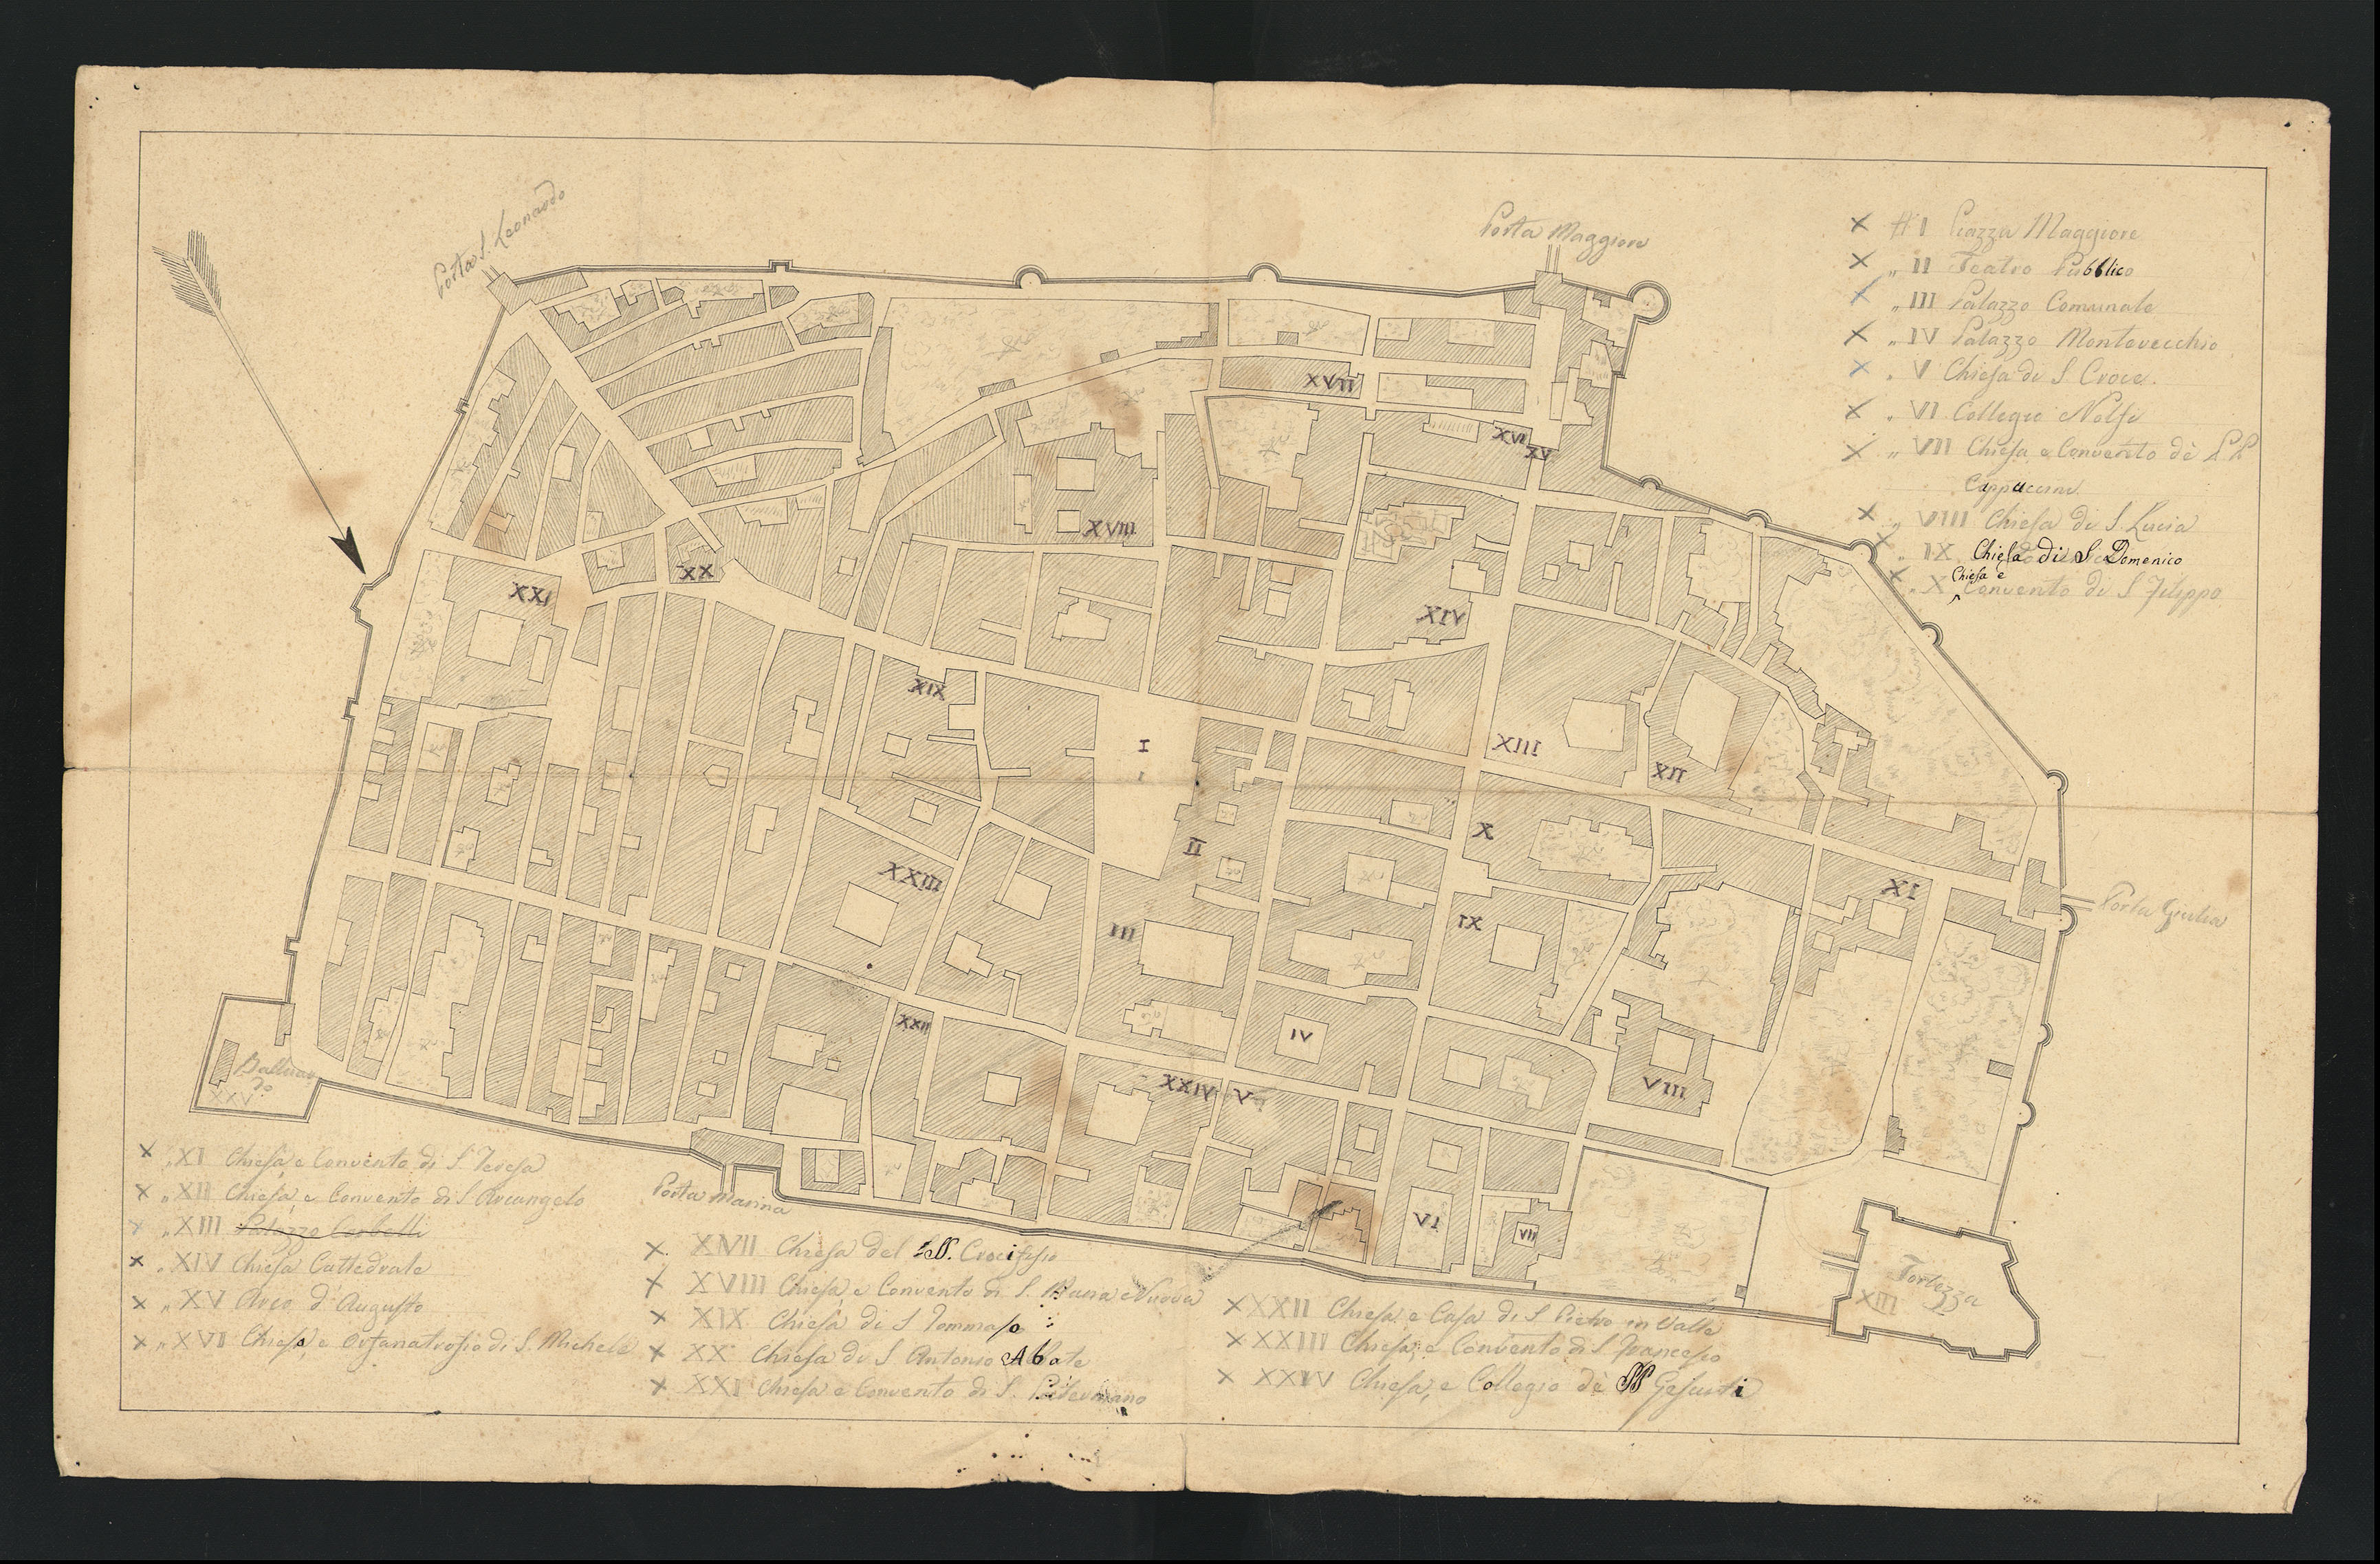 Porta S. Leonardo
Porta Maggiore
# I Piazza Maggiore
" II Teatro Pubblico
" III Palazzo Comunale
" IV Palazzo Montevecchio
" V Chiesa di S Croce.
" VI Collegio Nolfi
" VII Chiesa e Convento dè PP
Cappuccini
" VIII Chiesa di S. Lucia
" IX Chiesa di S. Domenico
Chiesa e
" X Convento di S Filippo
XVII
XVI
XV
XVIII
XX
XXI
XIV
XIX
I
I
XIII
XII
II
X
XXIII
XI
III
IX
Porta Giulia
XXII
IV
XXIV V
VIII
Balluar
do
XXV
VI
VII
Fortezza
XIII
Porta Marina
" XI Chiesa e Convento di S. Teresa
" XII Chiesa e Convento di S Arcangelo
" XIII Palazzo
" XIV Chiesa Cattedrale
" XV Arco d'Augusto
" XVI Chiesa e Orfanatrofio di S. Michele
XVII Chiesa del SS. Crocifisso
XVIII Chiesa e Convento di S. Maria Nuova
XIX Chiesa di S Tommaso
XX Chiesa di S Antonio Abate
XXI Chiesa e Convento di S. Paterniano
XXII Chiesa e Casa di S Pietro in Valle
XXIII Chiesa e Convento di S. Francesco
XXIV Chiesa e Collegio dè PP Gesuiti